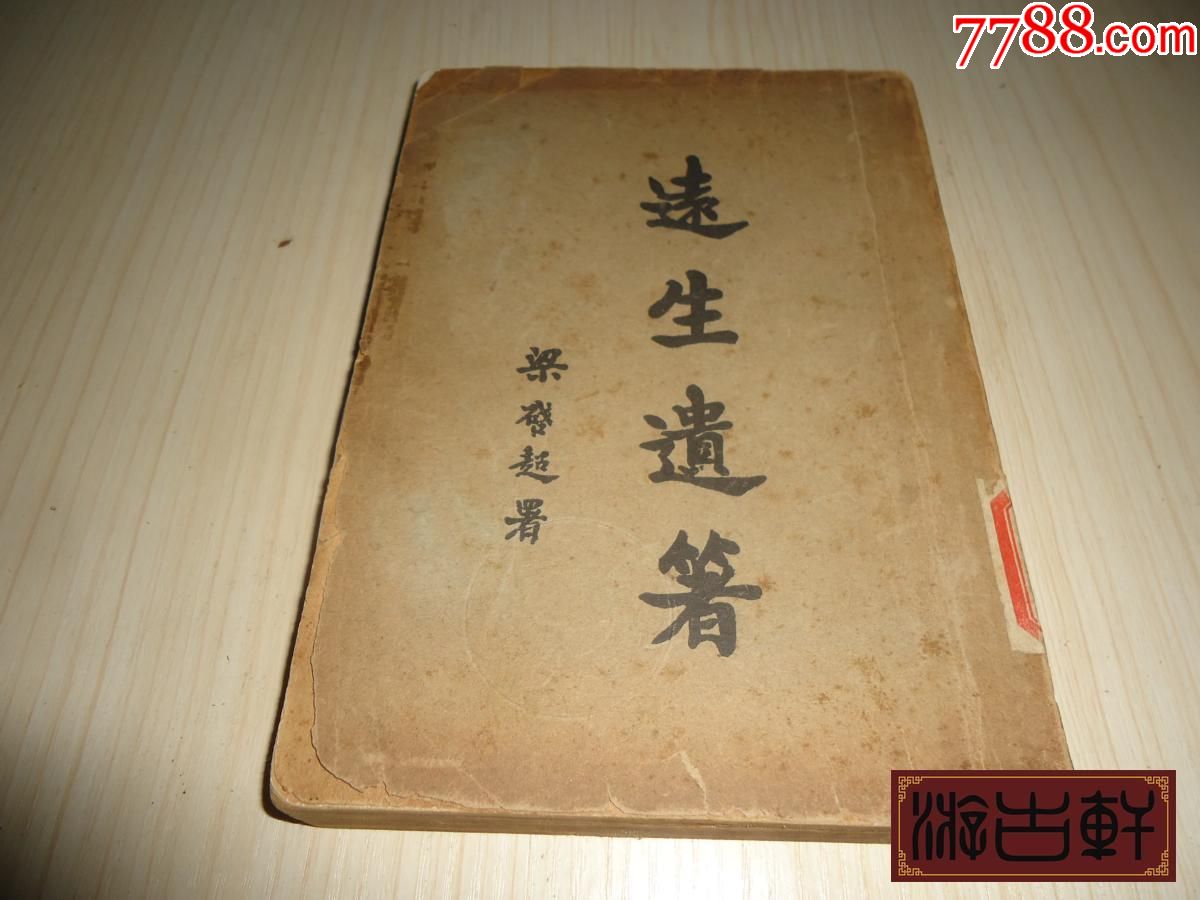 7788.com
遠生遺箸
梁啓超署
游古軒